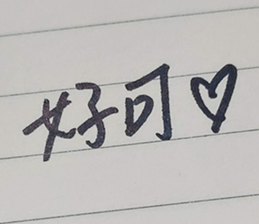 好可♡